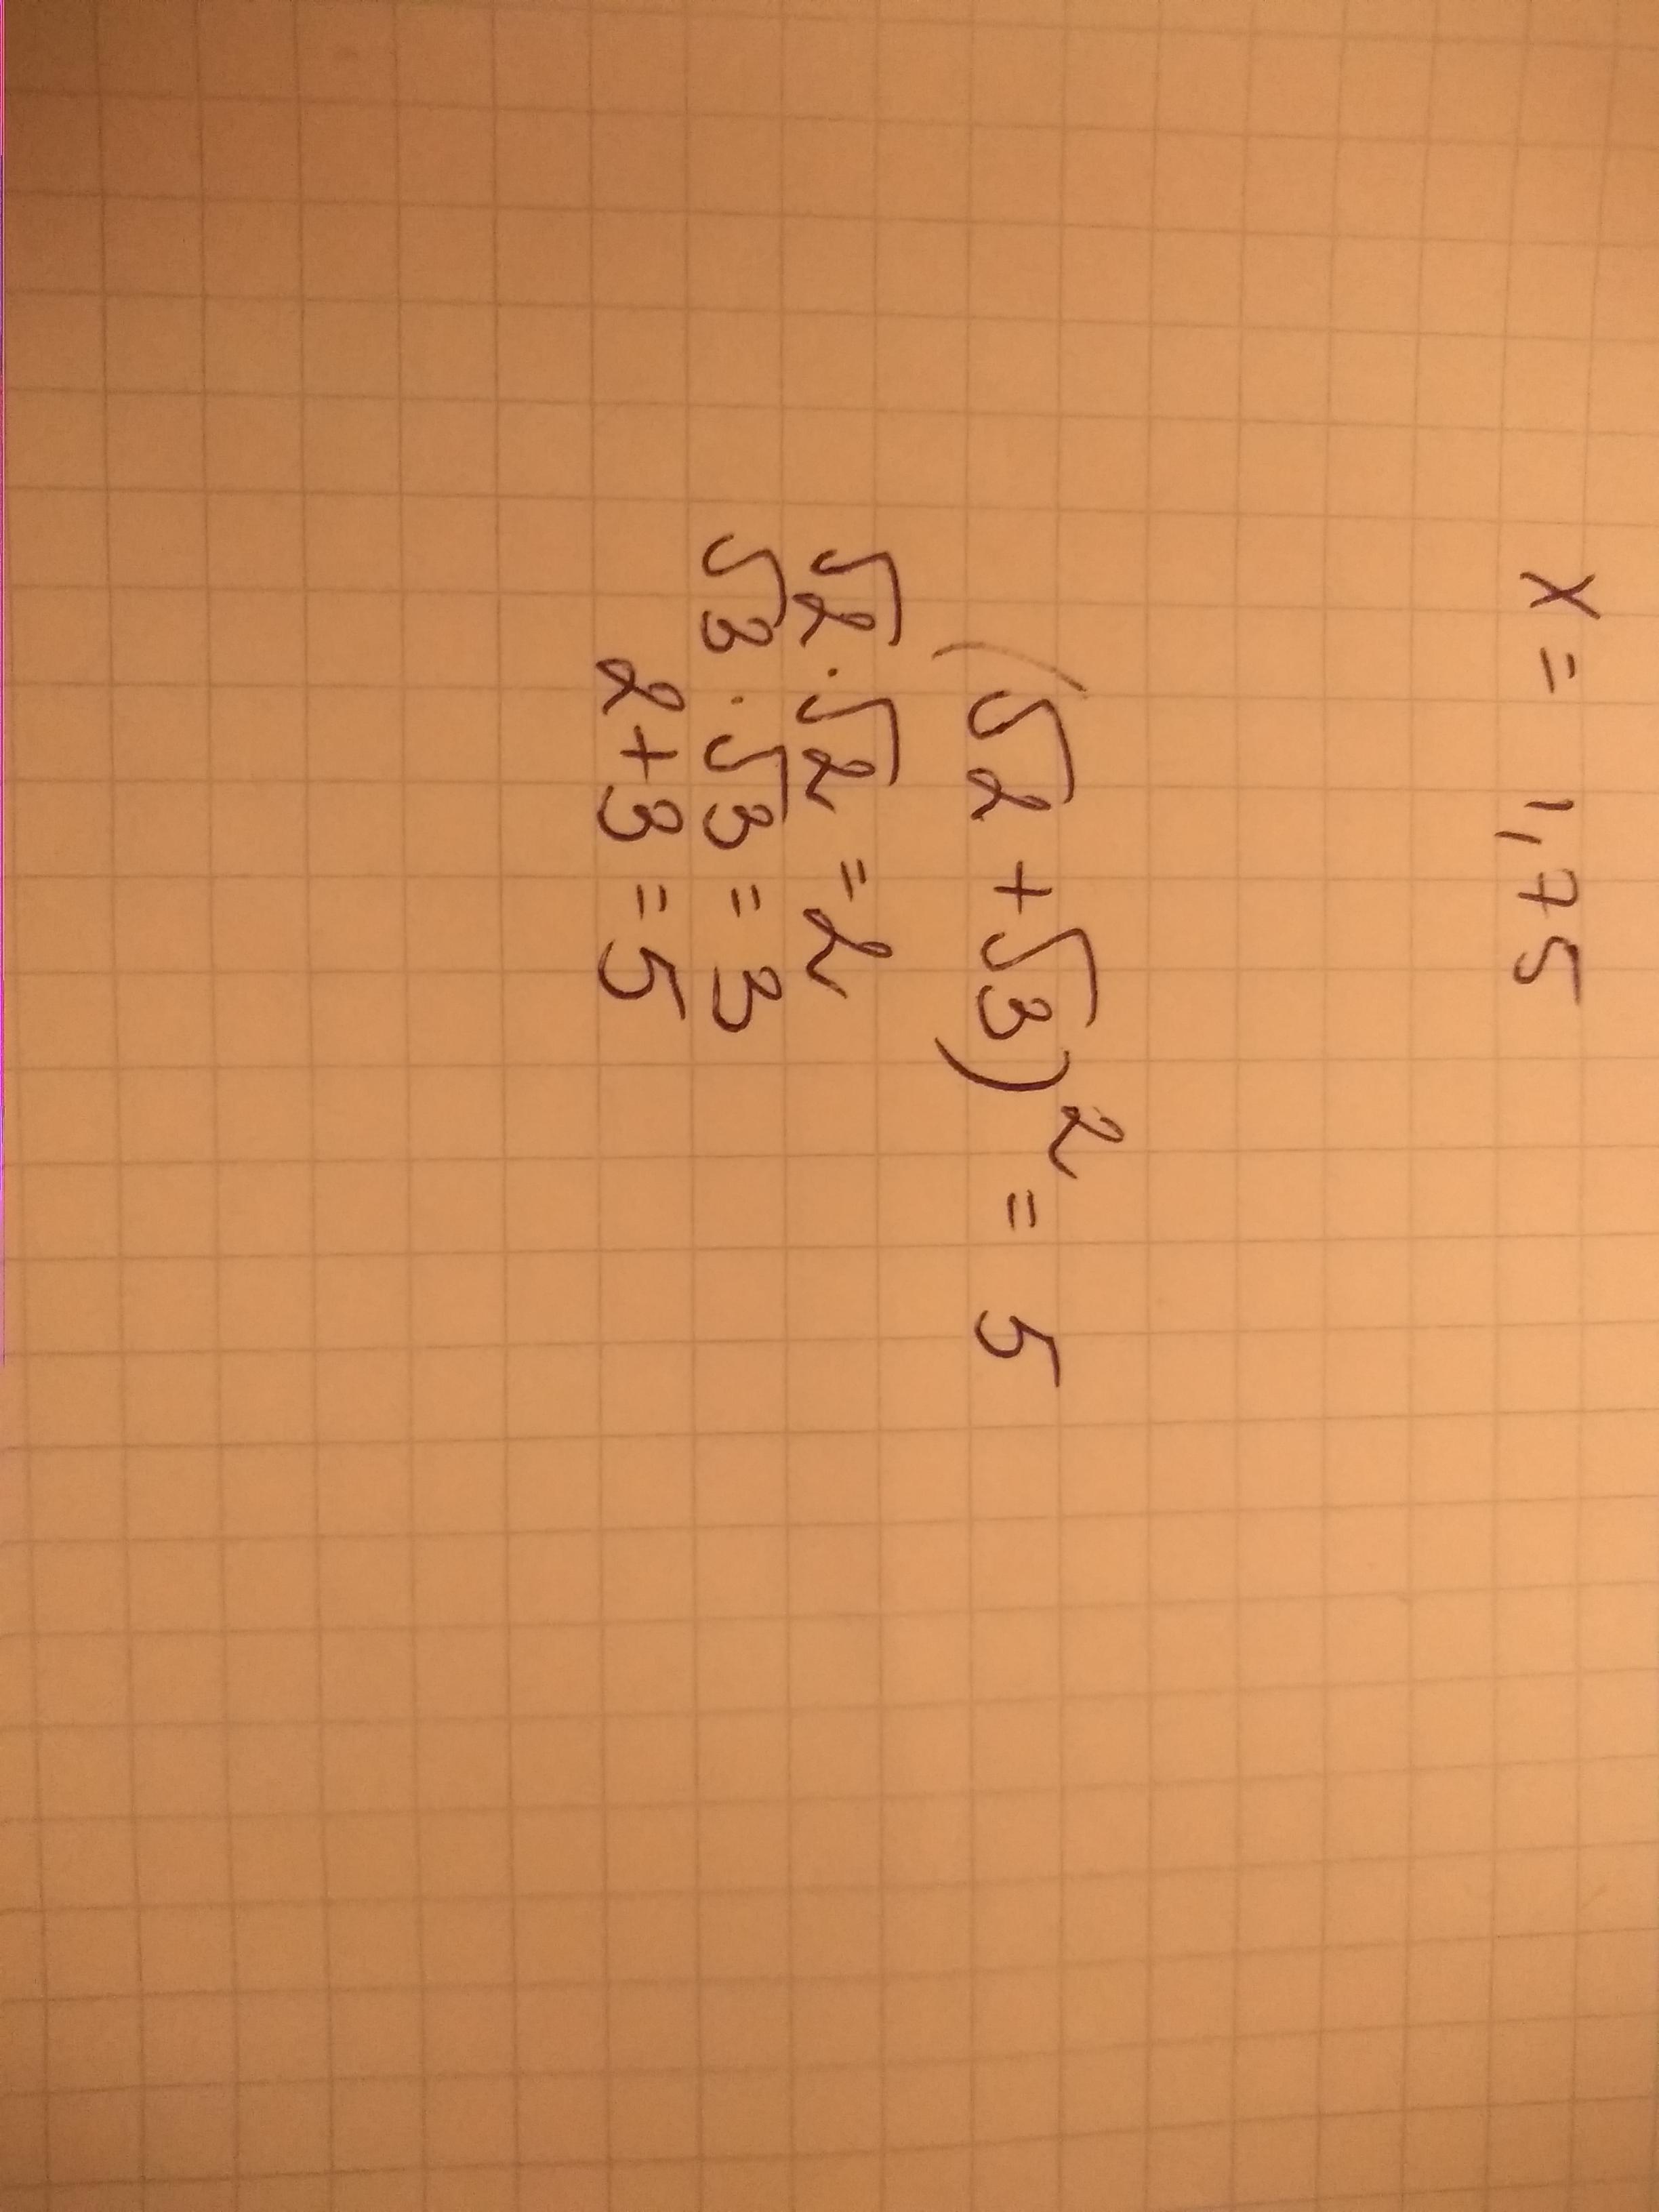 x = 1,75
(√2 + √3)² = 5
√2 · √2 = 2
√3 · √3 = 3
2 + 3 = 5